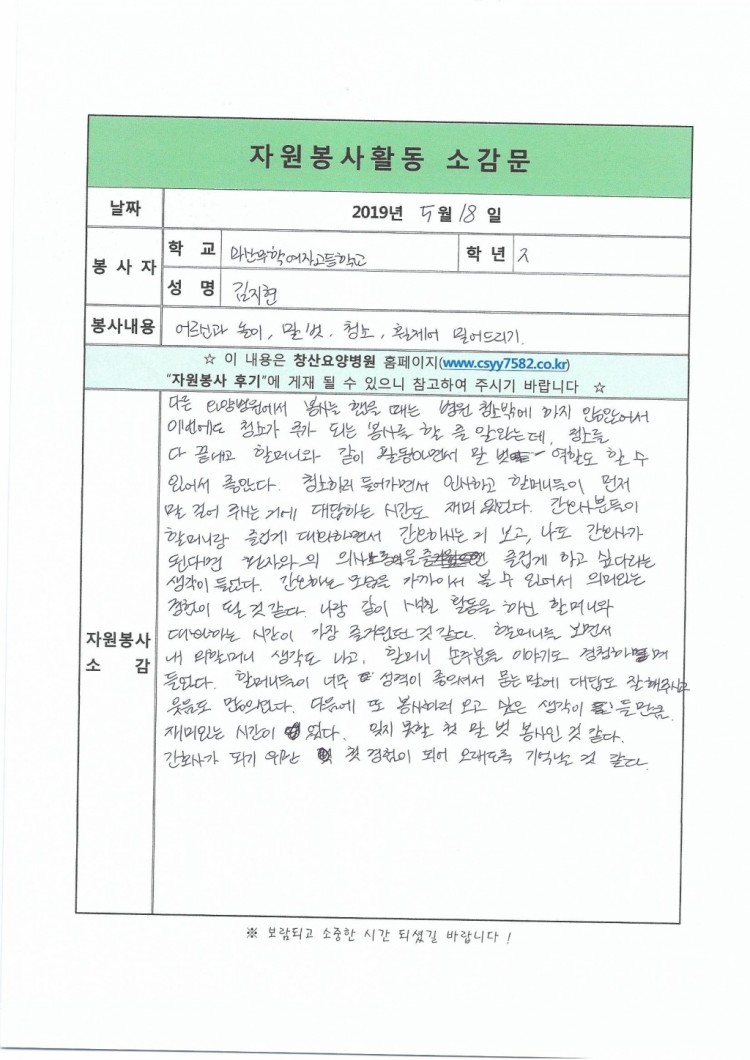 자원봉사활동 소감문
날짜 2019년 5월 18일
봉사자 학교 마산무학여자고등학교 학년 2
성명 김지현
봉사내용 어르신과 놀이, 말벗, 청소, 휠체어 밀어드리기.
☆ 이 내용은 창산요양병원 홈페이지(www.csyy7582.co.kr)
"자원봉사 후기"에 게재 될 수 있으니 참고하여 주시기 바랍니다 ☆
자원봉사 소감
다른 요양병원에서 봉사를 했을 때는 병원 청소밖에 하지 않았어서
이번에도 청소가 주가 되는 봉사를 할 줄 알았는데, 청소를
다 끝내고 할머니와 같이 활동하면서 말 벗 역할도 할 수
있어서 좋았다. 청소하러 들어가면서 인사하고 할머니들이 먼저
말 걸어 주시는 거에 대답하는 시간도 재미 있었다. 간호사분들이
할머니랑 즐겁게 대화하면서 간호하시는 거 보고, 나도 간호사가
된다면 환자와의 의사소통을 즐겁게 하고 싶다라는
생각이 들었다. 간호하는 모습을 가까이서 볼 수 있어서 의미있는
경험이 될 것 같다. 나랑 같이 색칠 활동을 하신 할머니와
대화하는 시간이 가장 즐거웠던 것 같다. 할머니를 보면서
내 외할머니 생각도 나고, 할머니 손주분들 이야기도 경청하며
들었다. 할머니들이 너무 성격이 좋으셔서 묻는 말에 대답도 잘해주시고
웃음도 많으셨다. 다음에 또 봉사하러 오고 싶은 생각이 들만큼
재미있는 시간이 었다. 잊지 못할 첫 말 벗 봉사인 것 같다.
간호사가 되기 위한 첫 경험이 되어 오래도록 기억날 것 같다.
※ 보람되고 소중한 시간 되셨길 바랍니다!